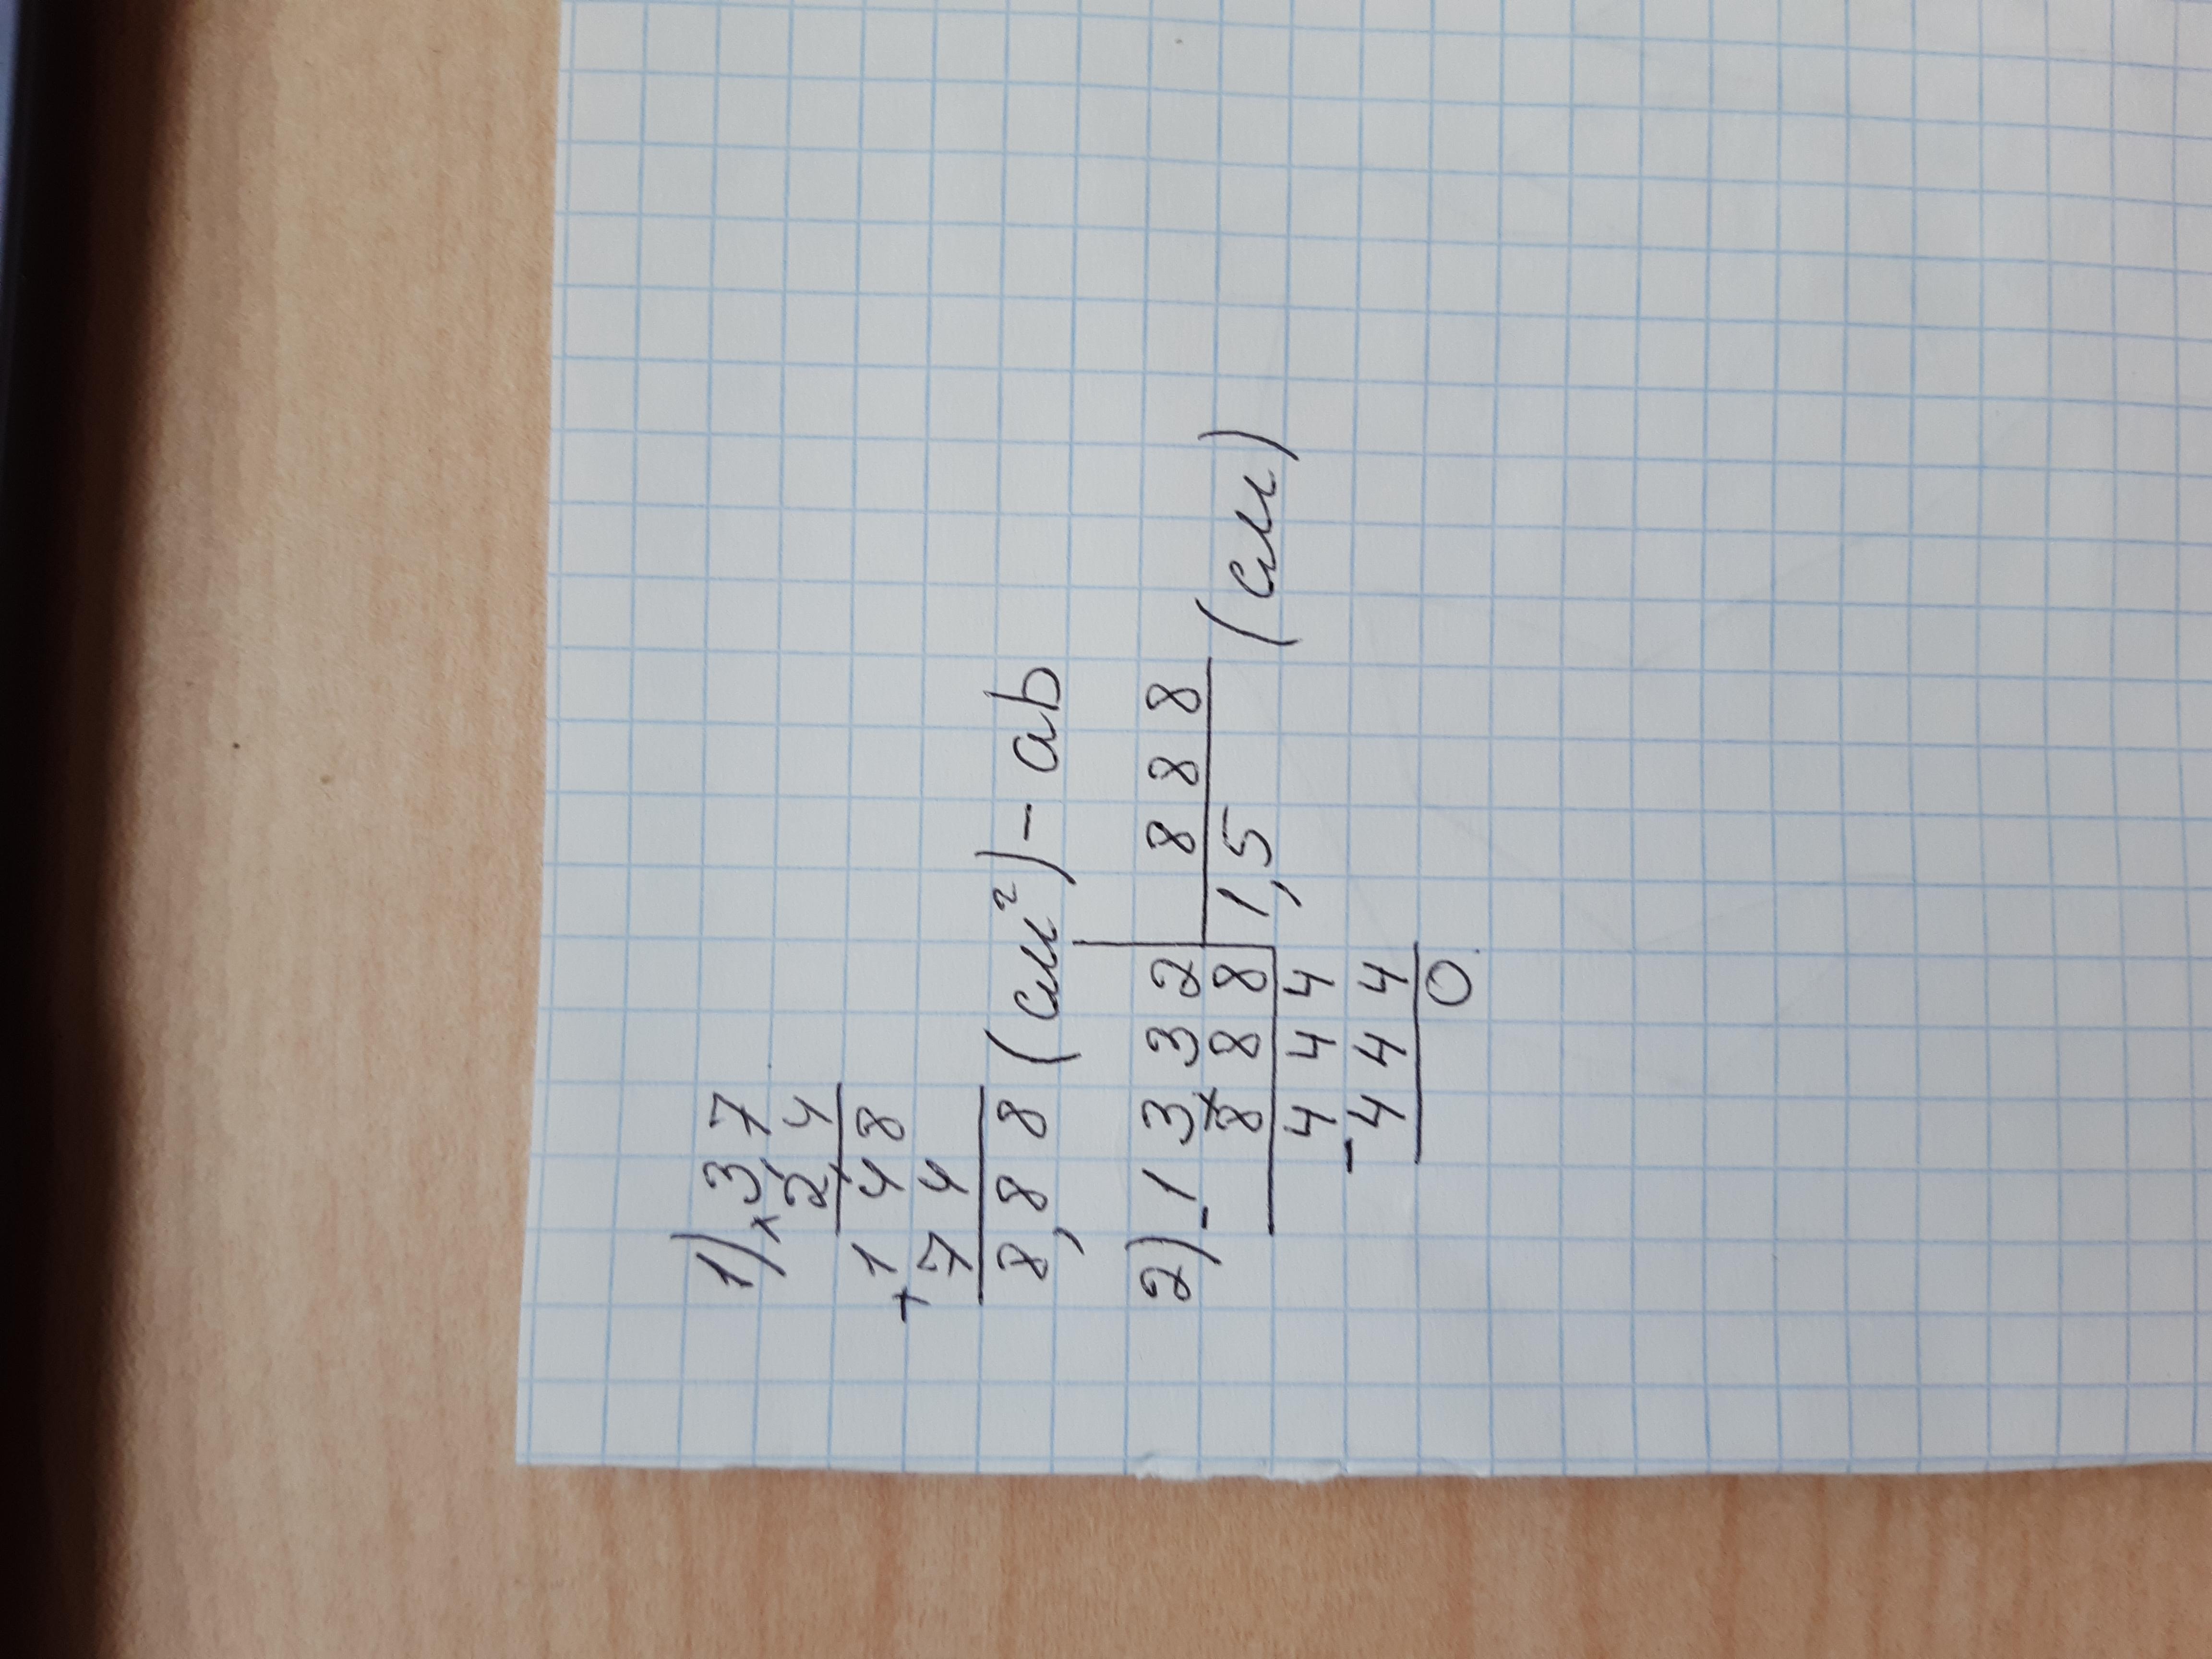 1) × 37
24
148
+ 74
8,88 (см²) - ab
2) - 1332 | 888
888 | 1,5 (см)
444
- 444
0